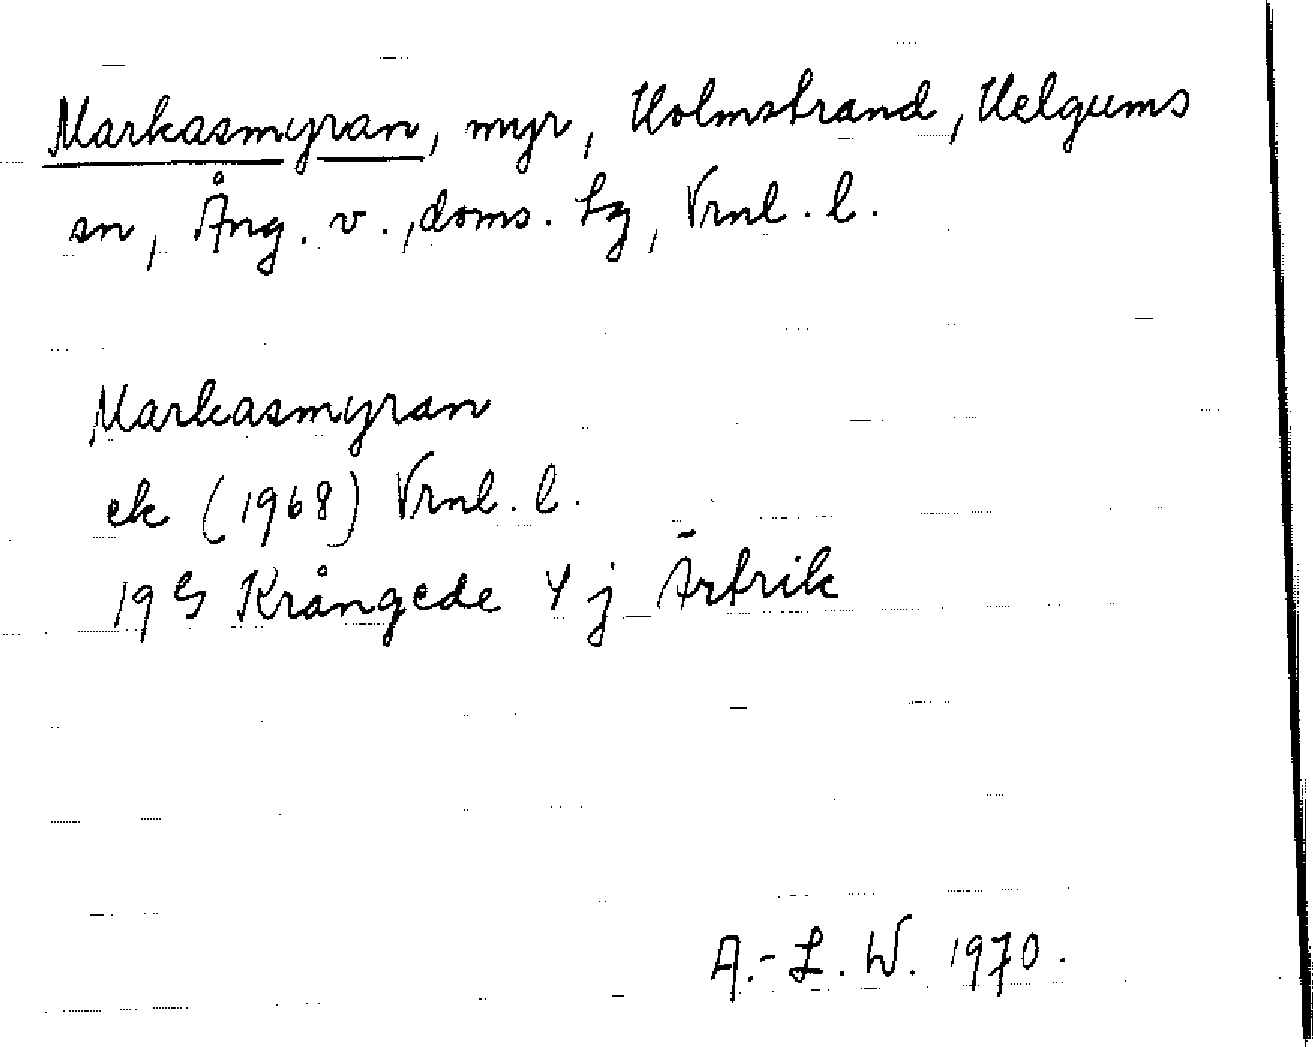 Markasmyran, myr, Holmstrand, Helgums
sn, Ång. v., doms. hg, Vrnl. l.
Markasmyran
ek (1968) Vrnl. l.
19 G Krångede 4 j Ärtrik
A.-L. W. 1970.